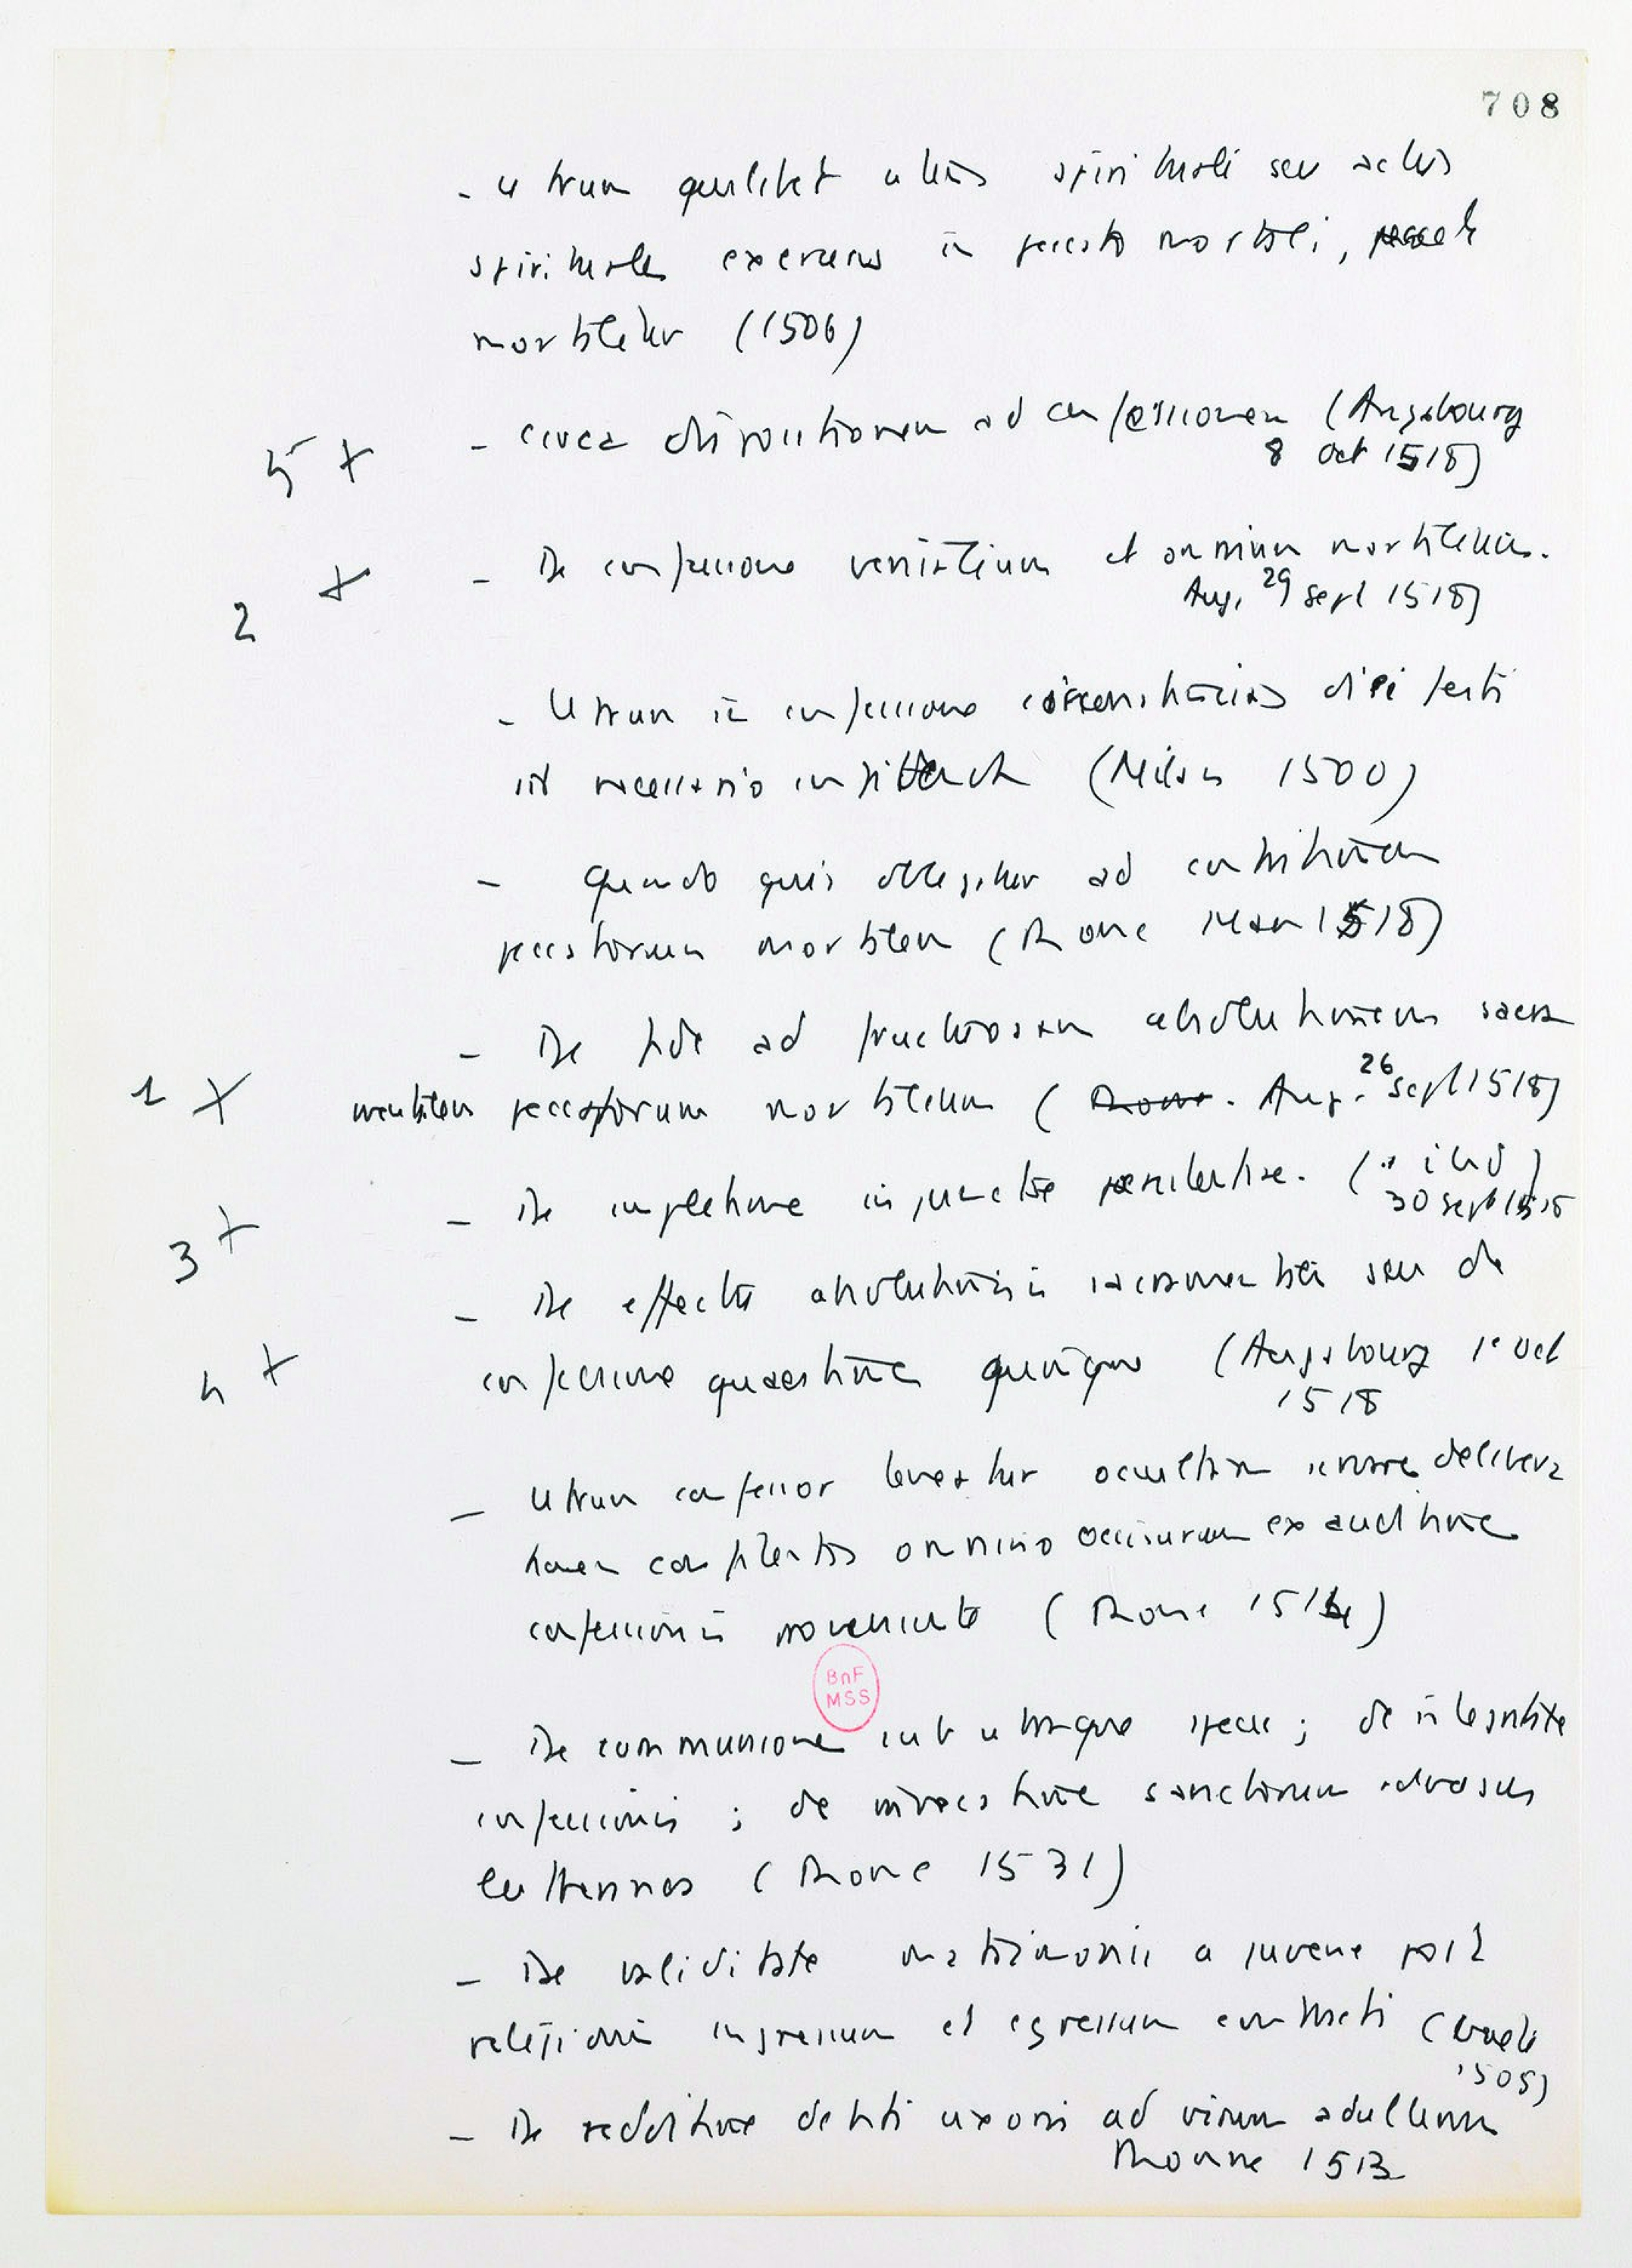 708
- utrum quilibet utens spirituali seu actus
spirituales exercens in peccato mortali, peccet
mortaliter (1506)
5 x - circa dispositionem ad confessionem (Augsbourg
8 oct 1518)
2 x - De confessione venialium et omnium mortalium.
Aug. 29 sept 1518)
- Utrum in confessione circonstancias diei festi
sit necessario confitenda (Milan 1500)
- Quando quis obligatur ad contritionem
peccatorum mortalium (Rome 1518)
- De fide ad fructuosam absolutionem sacra
1 x mentalem peccatorum mortalium ( Rome. Aug. 26 sept 1518)
3 x - De impletione injunctae poenitentiae. ( ibid )
30 sept 1518
- De effectu absolutionis sacramentalis seu de
4 x confessione quaestione quinque (Augsbourg 1er Oct
1518
- Utrum confessor teneatur occultam servare delibera
tionem confitentis omnino occisurum ex auditione
confessionis proveniente ( Rome 1514)
BnF
MSS
- De communione sub utraque specie ; de integritate
confessionis ; de invocatione sanctorum adversus
lutheranos ( Rome 1531)
- De validitate matrimonii a juvene post
religionis ingressum et egressum contracti (
1505)
- De redditione debiti uxoris ad virum adulterum
Rome 1513